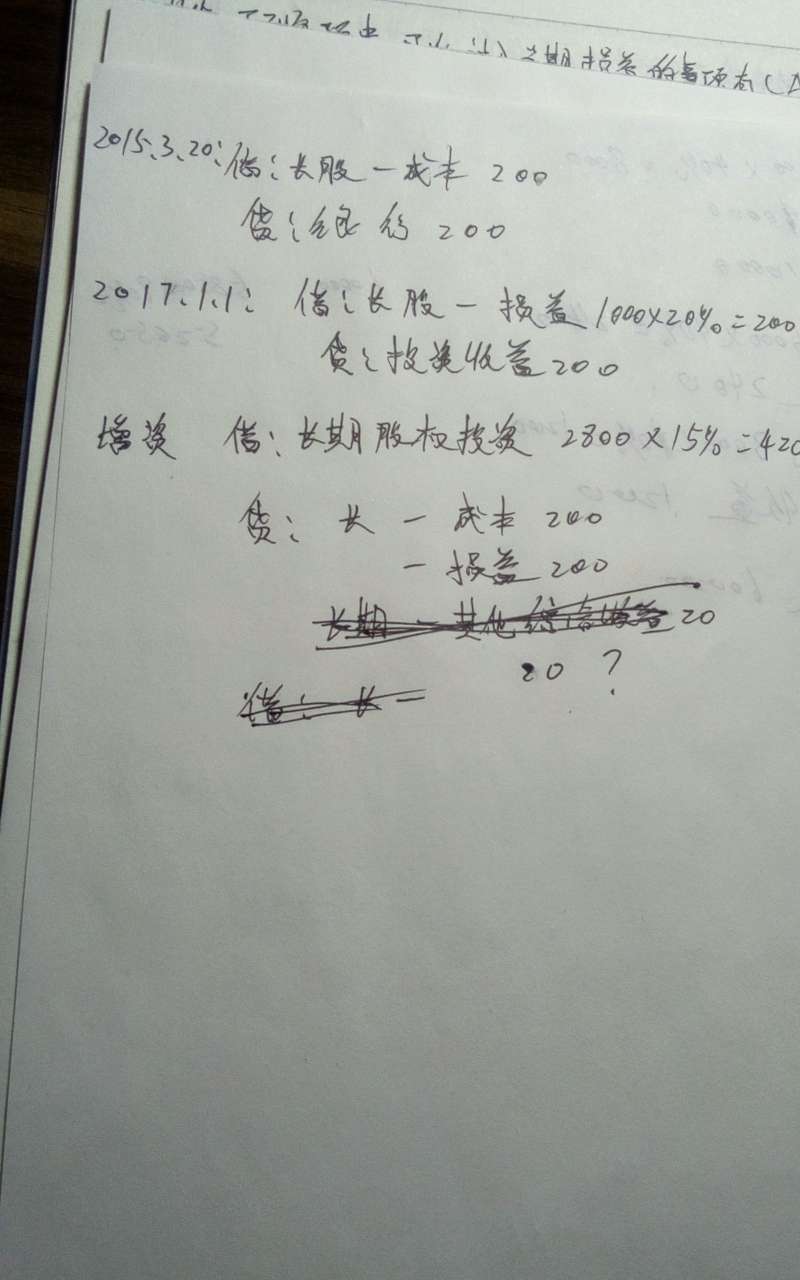 当期损益的事项有(A
2015.3.20:借:长股一成本 200
贷:银行 200
2017.1.1: 借:长股一损益 1000×20%=200
贷:投资收益200
增资 借:长期股权投资 2800×15%=420
贷: 长一成本 200
一损益 200
长期一其他综合收益 20
20 ?
借: 长一